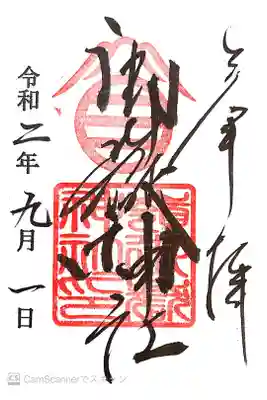 奉拝
御嶽神社
令和二年九月一日
CS CamScannerでスキャン